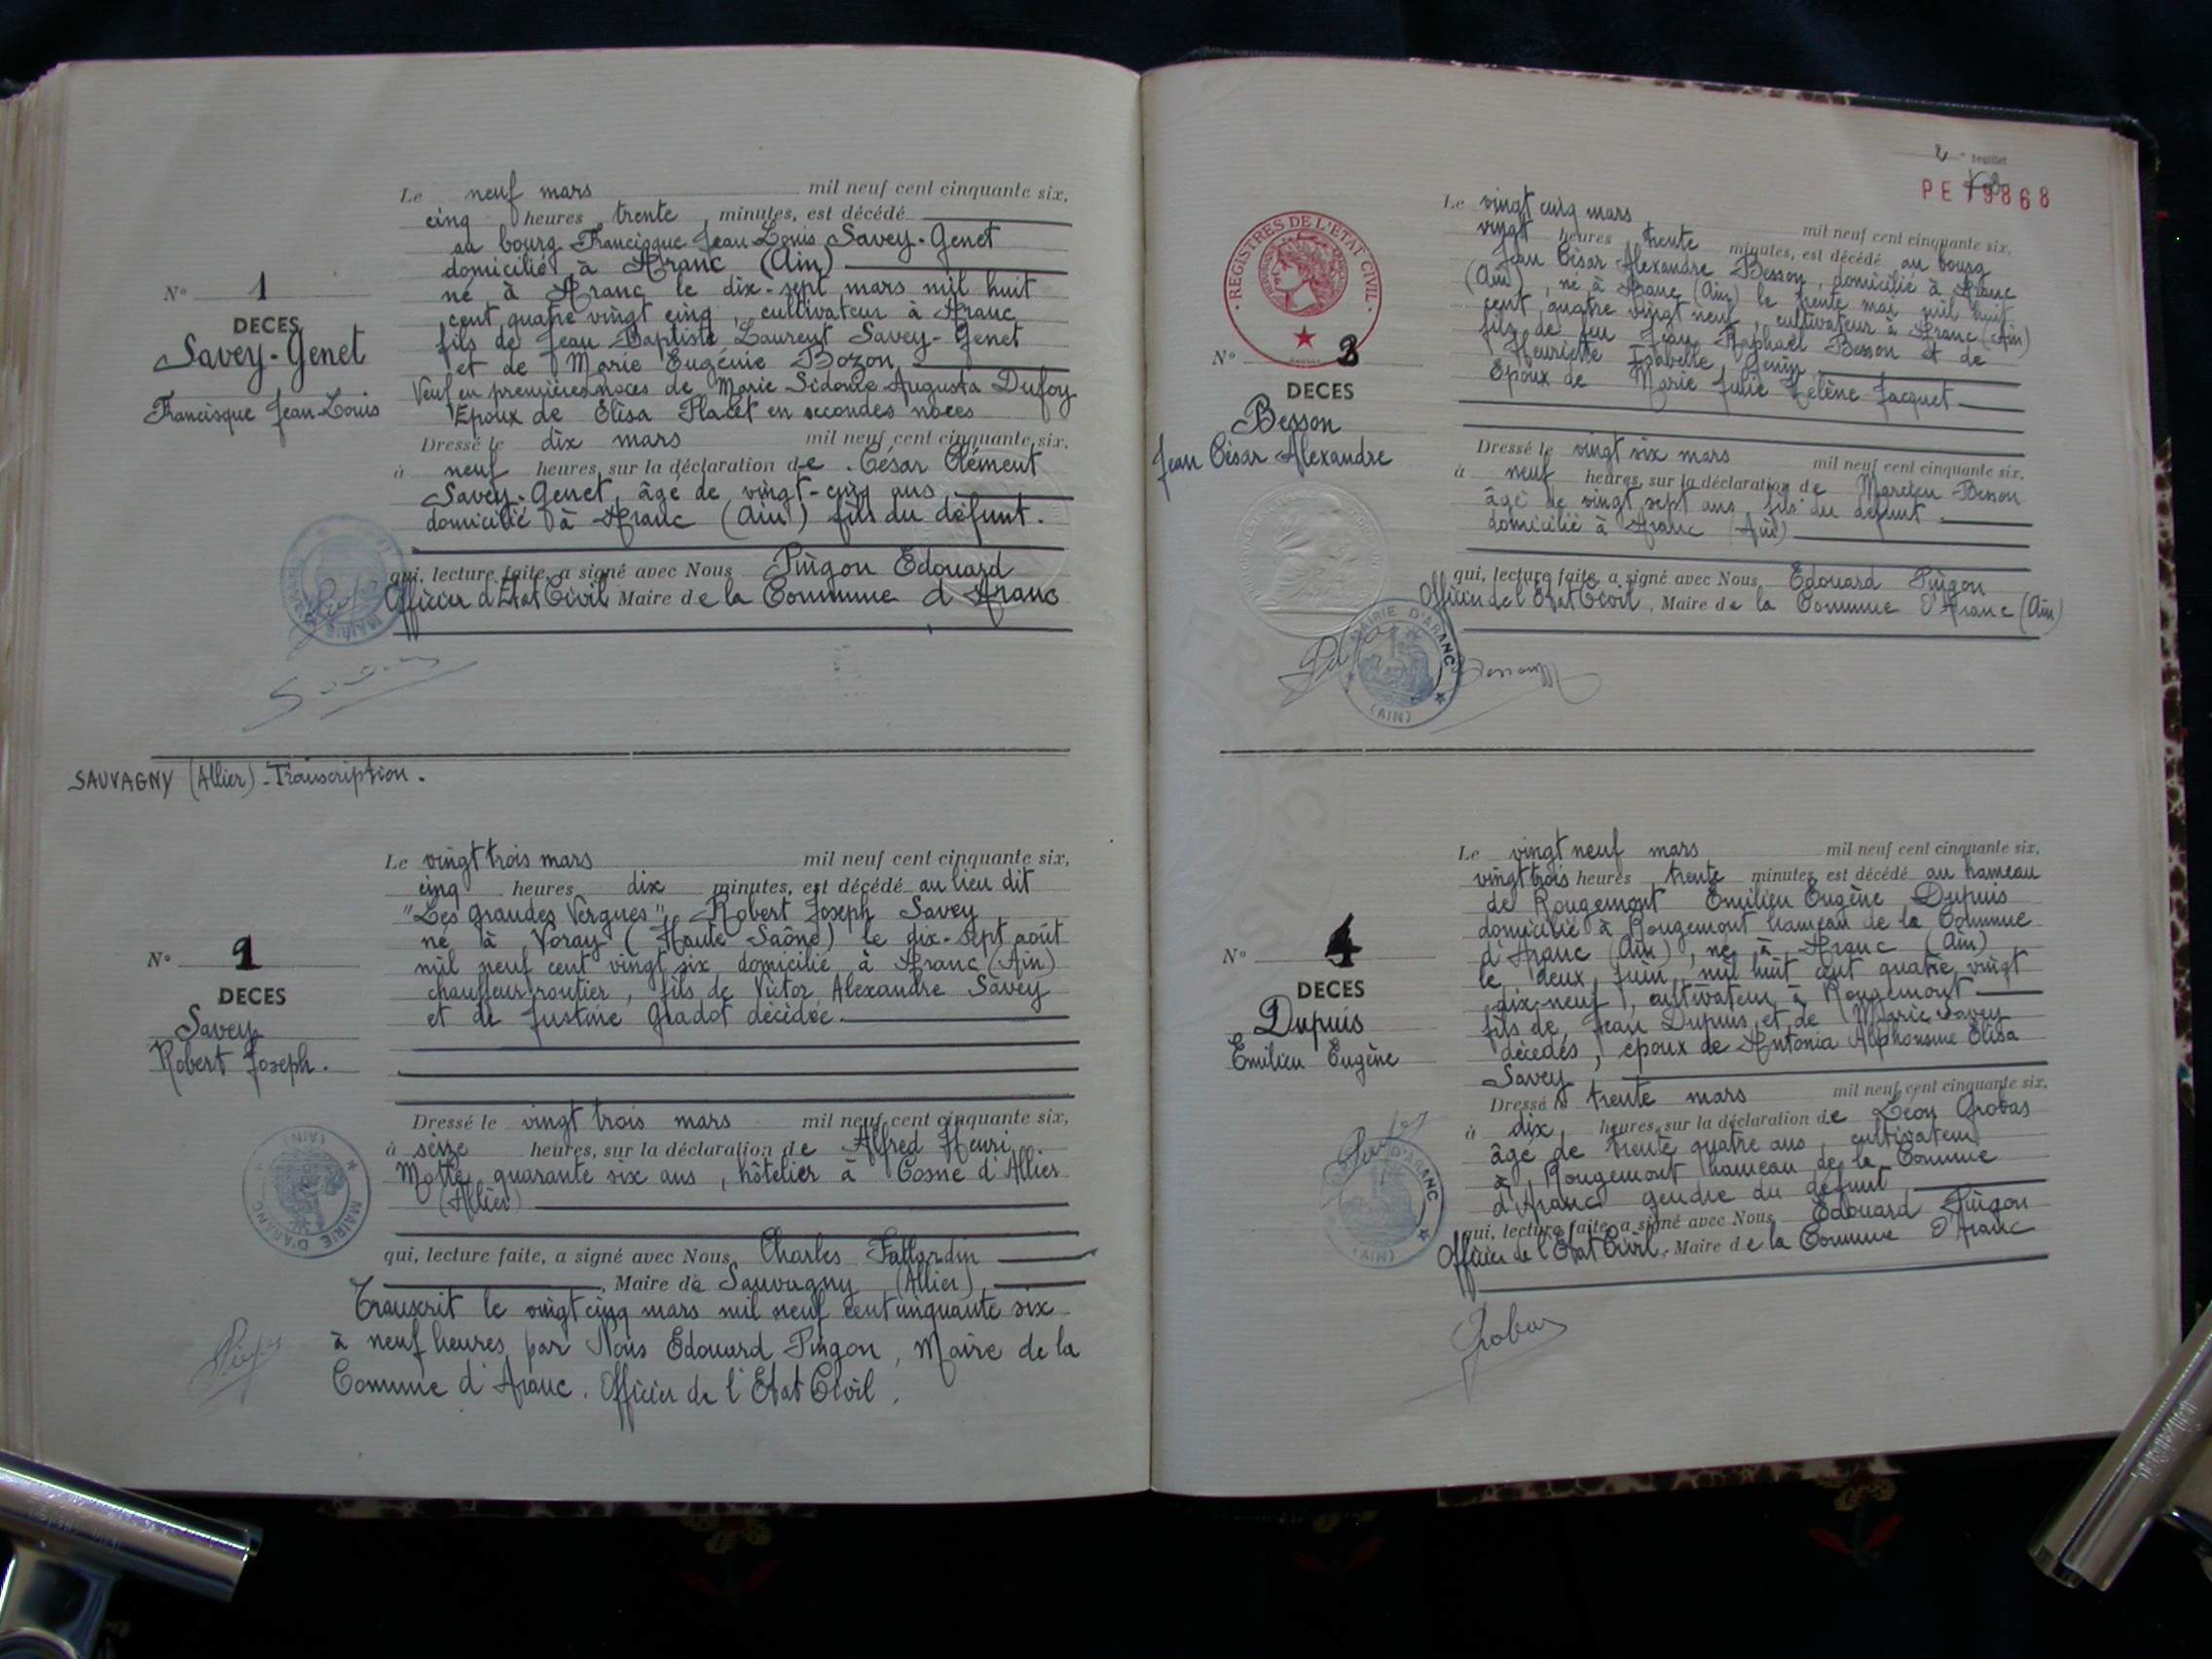 Le neuf mars mil neuf cent cinquante six,
cinq heures trente minutes, est décédé
au bourg Francisque Jean Louis Savey-Genet
domicilié à Aranc (Ain)
né à Aranc le dix-sept mars mil huit
cent quatre vingt cinq, cultivateur à Aranc
fils de Jean Baptiste Laurent Savey-Genet
et de Marie Eugénie Bozon
Veuf en premières noces de Marie Sidonie Augusta Dufoy
Epoux de Elisa Placet en secondes noces
N° 1
DECES
Savey-Genet
Francisque Jean-Louis
Dressé le dix mars mil neuf cent cinquante six,
à neuf heures, sur la déclaration de César Clément
Savey-Genet, âgé de vingt-cinq ans
domicilié à Aranc (Ain) fils du défunt.
qui, lecture faite, a signé avec Nous Pingon Edouard
Officier d'Etat Civil Maire de la Commune d'Aranc
SAUVAGNY (Allier) - Transcription.
Le vingt trois mars mil neuf cent cinquante six,
cinq heures dix minutes, est décédé au lieu dit
"Les Grandes Vergnes", Robert Joseph Savey
né à Voray (Haute Saône) le dix-sept août
mil neuf cent vingt six, domicilié à Aranc (Ain)
chauffeur routier, fils de Victor Alexandre Savey
et de Justine Gradot décédée.
N° 2
DECES
Savey
Robert Joseph.
Dressé le vingt trois mars mil neuf cent cinquante six,
à seize heures, sur la déclaration de Alfred Henri
Motte, quarante six ans, hôtelier à Cosne d'Allier
(Allier)
MAIRIE D'ARANC
(AIN)
qui, lecture faite, a signé avec Nous, Charles
, Maire de Sauvagny (Allier),
Transcrit le vingt cinq mars mil neuf cent cinquante six
à neuf heures par Nous Edouard Pingon, Maire de la
Commune d'Aranc. Officier de l'Etat Civil.
2e feuillet
PE 79868
REGISTRES DE L'ETAT CIVIL
Le vingt cinq mars mil neuf cent cinquante six,
vingt heures trente minutes, est décédé au bourg
Jean César Alexandre Besson, domicilié à Aranc
(Ain), né à Aranc (Ain) le trente mai mil huit
cent quatre vingt neuf, cultivateur à Aranc (Ain)
fils de feu Jean Raphaël Besson et de
Henriette Isabelle Genin
Epoux de Marie Julie Hélène Jacquet
N° 3
DECES
Besson
Jean César Alexandre
Dressé le vingt six mars mil neuf cent cinquante six,
à neuf heures, sur la déclaration de Besson
âgé de vingt sept ans, fils du défunt
domicilié à Aranc (Ain)
qui, lecture faite, a signé avec Nous, Edouard Pingon
Officier de l'Etat Civil, Maire de la Commune d'Aranc (Ain)
MAIRIE D'ARANC
(AIN)
Le vingt neuf mars mil neuf cent cinquante six,
vingt trois heures trente minutes, est décédé au hameau
de Rougemont Emilien Eugène Dupuis
domicilié à Rougemont hameau de la Commune
d'Aranc (Ain), né à Aranc (Ain)
le deux juin mil huit cent quatre vingt
dix-neuf, cultivateur à Rougemont
fils de Jean Dupuis et de Marie Savey
décédés, époux de Antonia Alphonsine Elisa
Savey
N° 4
DECES
Dupuis
Emilien Eugène
Dressé le trente mars mil neuf cent cinquante six,
à dix heures, sur la déclaration de Léon Grobas
âgé de trente quatre ans, cultivateur
à Rougemont hameau de la Commune
d'Aranc gendre du défunt
qui, lecture faite, a signé avec Nous, Edouard Pingon
Officier de l'Etat Civil, Maire de la Commune d'Aranc
D'ARANC
(AIN)
Grobas